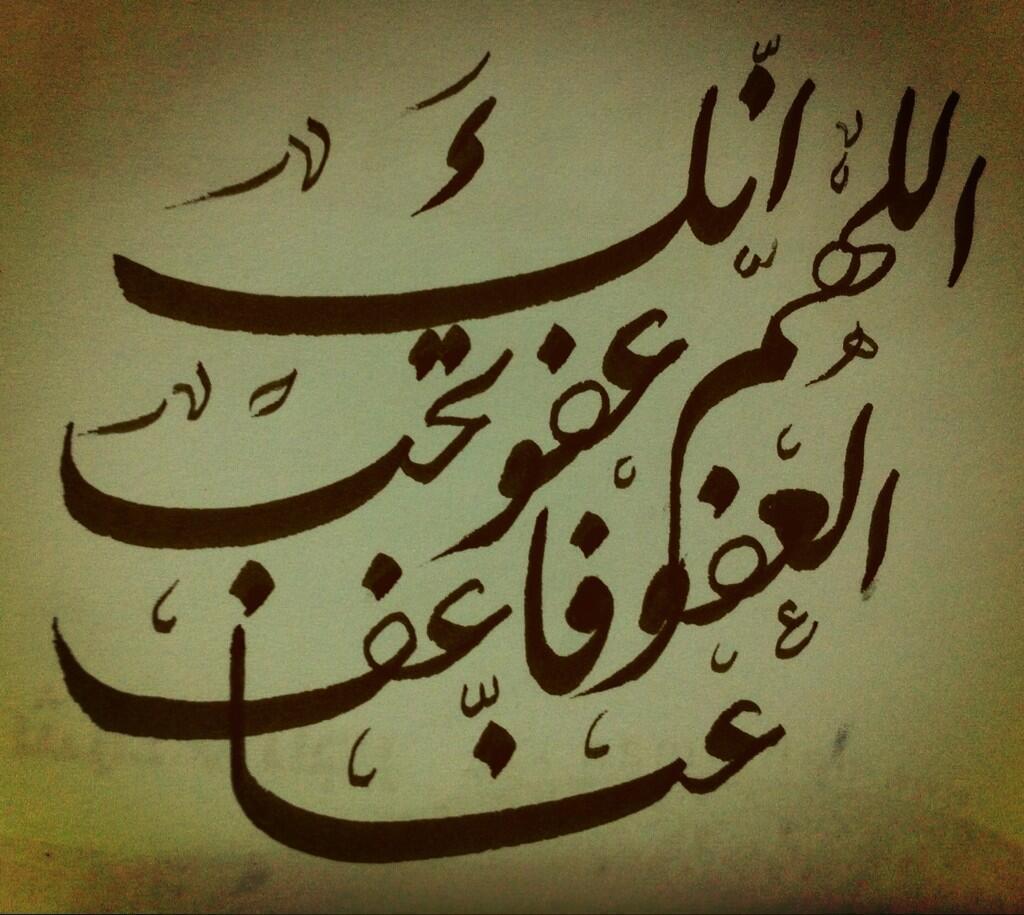 اللهمّ انّك
عفو تحب
العفو فاعف
عنّا